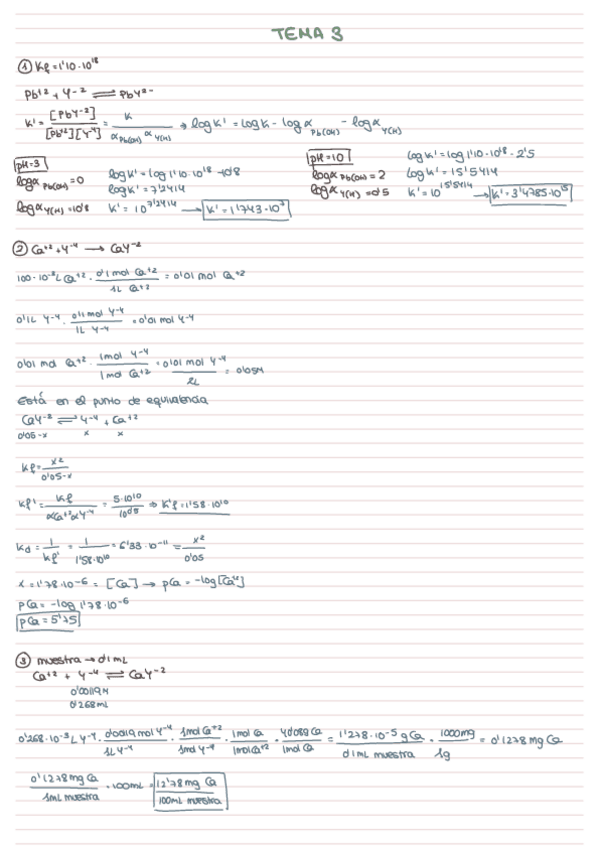 TEMA 3
① Kf = 1'10·10¹⁸
Pb⁺² + Y⁻⁴ ⇌ PbY²⁻
K' = [PbY⁻²] / [Pb⁺²][Y⁻⁴] = K / αPb(OH) αY(H) → log K' = log K - log αPb(OH) - log αY(H)
pH=3
log αPb(OH) = 0
log αY(H) = 10'8
log K' = log 1'10·10¹⁸ - 10'8
log K' = 7'2414
K' = 10^7'2414 → K' = 1'743·10⁷
pH=10
log αPb(OH) = 2
log αY(H) = 0'5
log K' = log 1'10·10¹⁸ - 2'5
log K' = 15'5414
K' = 10^15'5414 → K' = 3'4785·10¹⁵
② Ca⁺² + Y⁻⁴ → CaY⁻²
100·10⁻³ L Ca⁺² · 0'1 mol Ca⁺² / 1L Ca⁺² = 0'01 mol Ca⁺²
0'1L Y⁻⁴ · 0'1 mol Y⁻⁴ / 1L Y⁻⁴ = 0'01 mol Y⁻⁴
0'01 mol Ca⁺² · 1mol Y⁻⁴ / 1mol Ca⁺² = 0'01 mol Y⁻⁴ / 2L = 0'05M
Está en el punto de equivalencia
CaY⁻² ⇌ Y⁻⁴ + Ca⁺²
0'05-x x x
Kf = x² / 0'05-x
Kf' = Kf / αCa⁺² αY⁻⁴ = 5·10¹⁰ / 10^0'5 ⇒ K'f = 1'58·10¹⁰
Kd = 1 / Kf' = 1 / 1'58·10¹⁰ = 6'33·10⁻¹¹ = x² / 0'05
x = 1'78·10⁻⁶ = [Ca] → pCa = -log[Ca⁺²]
pCa = -log 1'78·10⁻⁶
pCa = 5'75
③ muestra → 0'1 mL
Ca⁺² + Y⁻⁴ ⇌ CaY⁻²
0'00119M
0'268mL
0'268·10⁻³ L Y⁻⁴ · 0'00119 mol Y⁻⁴ / 1L Y⁻⁴ · 1mol Ca⁺² / 1mol Y⁻⁴ · 1mol Ca / 1mol Ca⁺² · 40'08g Ca / 1mol Ca = 1'278·10⁻⁵ g Ca / 0'1mL muestra · 1000mg / 1g = 0'1278 mg Ca
0'1278 mg Ca / 1mL muestra · 100mL = 12'78 mg Ca / 100mL muestra